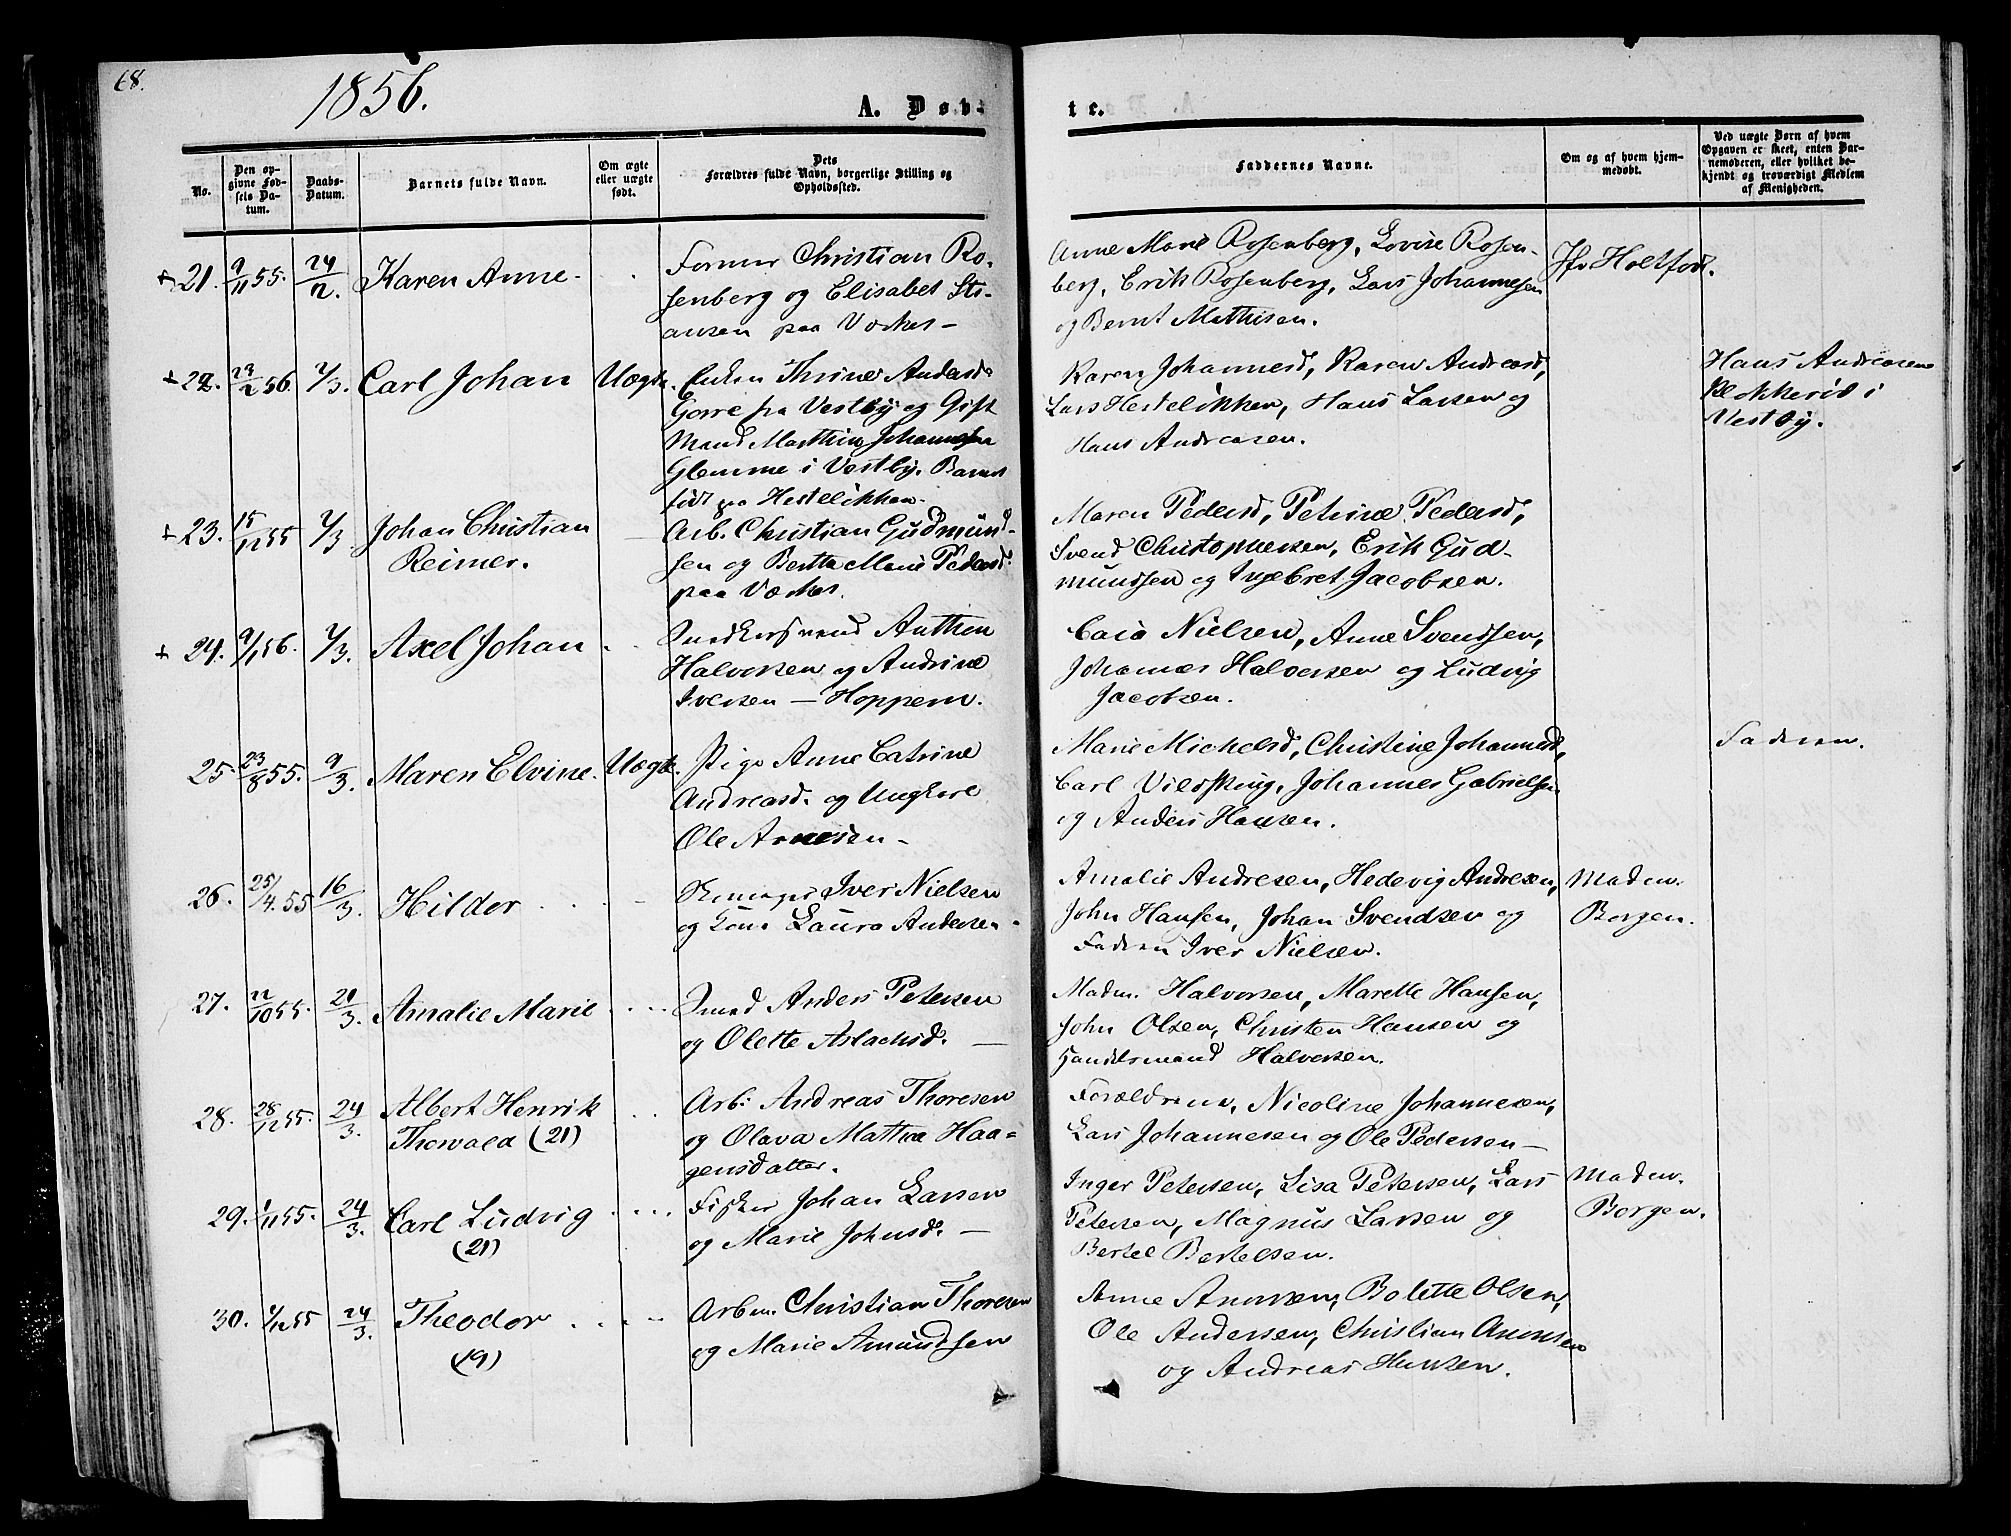 68.
1856.
A. Døb-
te.
No.
Den op-
givne Fød-
sels Da-
tum.
Daabs-
Datum.
Barnets fulde Navn.
Om ægte
eller uægte
født.
Dets
Forældres fulde Navn, borgerlige Stilling og
Opholdssted.
Faddernes Navne.
Om og af hvem hjem-
medøbt.
Ved uægte Børn af hvem
Opgaven er skeet, enten Bar-
nemoderen, eller hvilket be-
kjendt og troværdigt Medlem
af Menigheden.
21. 9/11 55. 24/2. Karen Anne
Christian Ro-
senberg og Elisabet
paa
Anne Marie Rosenberg, Lovise Rosen-
berg, Erik Rosenberg, Lars Johannesen
og Bernt Mathisen.
Jfr Holtfodt.
22. 23/2 56. 7/3. Carl Johan Uægte.
Enken Thrine Andersd.
fra Vestby og Gift
Mand Matthias Johannesen
Glemme i Vestby. Barnet
født paa Hestelökken.
Karen Johannesd, Karen Andreasd,
Lars Hestelökken, Hans Larsen og
Hans Andreasen.
Hans Andreasen
Klokkeröd i
Vestby.
23. 15/12 55 7/3 Johan Christian
Reimer.
Arb. Christian Gudmund-
sen og Bertha Marie Pedersd.
paa
Maren Pedersd, Petrine Pedersd,
Svend Christophersen, Erik Gud-
mundsen og Ingebret Jacobsen.
24. 9/1 56. 7/3. Axel Johan
Snedkersvend Anthon
Halvorsen og Andrine
Iversen — Hoppern.
Nielsen, Anne Svendsen,
Johannes Halvorsen og Ludvig
Jacobsen.
25. 23/8 55. 9/3. Maren Elvine. Uægte.
Pige Anne Catrine
Andreasd. og Ungkarl
Ole Arnesen —
Marie Michelsd, Christine Johannesd,
Carl Vildskung, Johannes Gabrielsen
og Anders Hansen.
Faderen.
26. 25/4. 55 16/3. Hildor
Iver Nielsen
og Kone Laura Andersen.
Amalie Andresen, Hedevig Andresen,
John Hansen, Johan Svendsen og
Faderen Iver Nielsen.
Madm.
Borgen.
27. 22/10 55. 21/3. Amalie Marie
Smed Anders Petersen
og Olette Aslachsd. —
Madm. Halvorsen, Marette Hansen,
John Olsen, Christen Hansen og
Handelsmand Halvorsen.
28. 28/12 55. 24/3. Albert Henrik
Thorvald (21)
Arb: Andreas Thoresen
og Olava Mathea Haa-
gensdatter.
Forældrene, Nicoline Johannesen,
Lars Johannesen og Ole Pedersen —
29. 1/11 55. 24/3. Carl Ludvig
(21)
Fisker Johan Larsen
og Marie Johnsd. —
Inger Petersen, Lisa Petersen, Lars
Petersen, Magnus Larsen og
Bertel Bertelsen.
Madm.
Borgen.
30. 55 24/3. Theodor
(19)
Arbm. Christian Thoresen
og Marie Amundsen
Anne Bolette Olsen,
Ole Andersen, Christian
og Andreas Hansen.